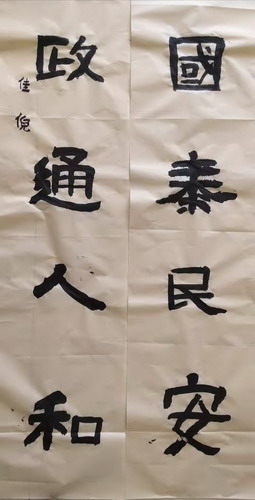 國泰民安
政通人和
佳倪